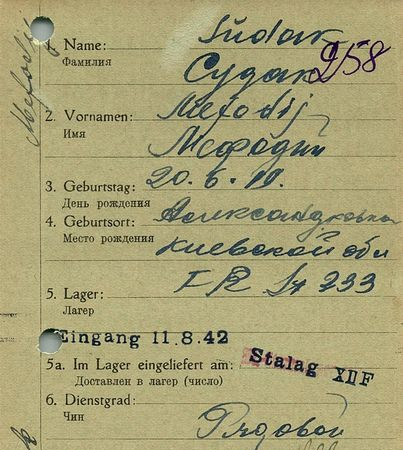 Mefodij
1. Name: Sudak
Фамилия Судак 958
2. Vornamen: Mefodij
Имя Мефодий
3. Geburtstag: 20.6.19.
День рождения
4. Geburtsort: Александровка
Место рождения Киевской обл
5. Lager:
Лагер
Eingang 11.8.42
5a. Im Lager eingeliefert am: Stalag XII F
Доставлен в лагер (число)
6. Dienstgrad:
Чин Рядовой